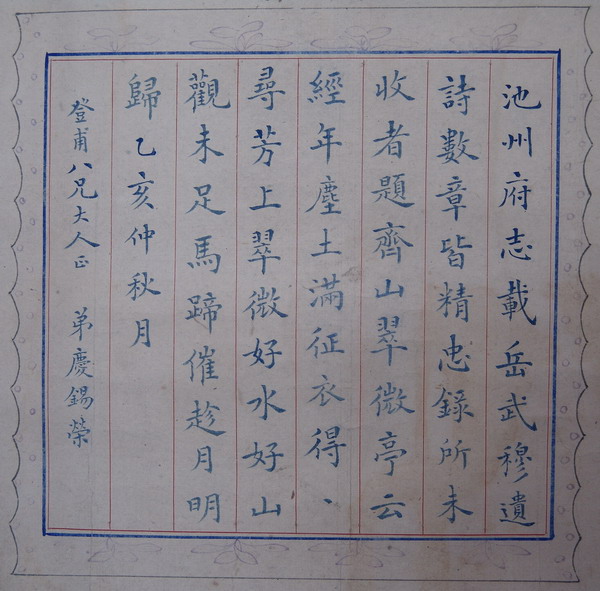 池州府志載岳武穆遺
詩數章皆精忠錄所未
收者題齊山翠微亭云
經年塵土滿征衣得、
尋芳上翠微好水好山
觀未足馬蹄催趁月明
歸乙亥仲秋月
登甫八兄大人正 弟慶錫榮